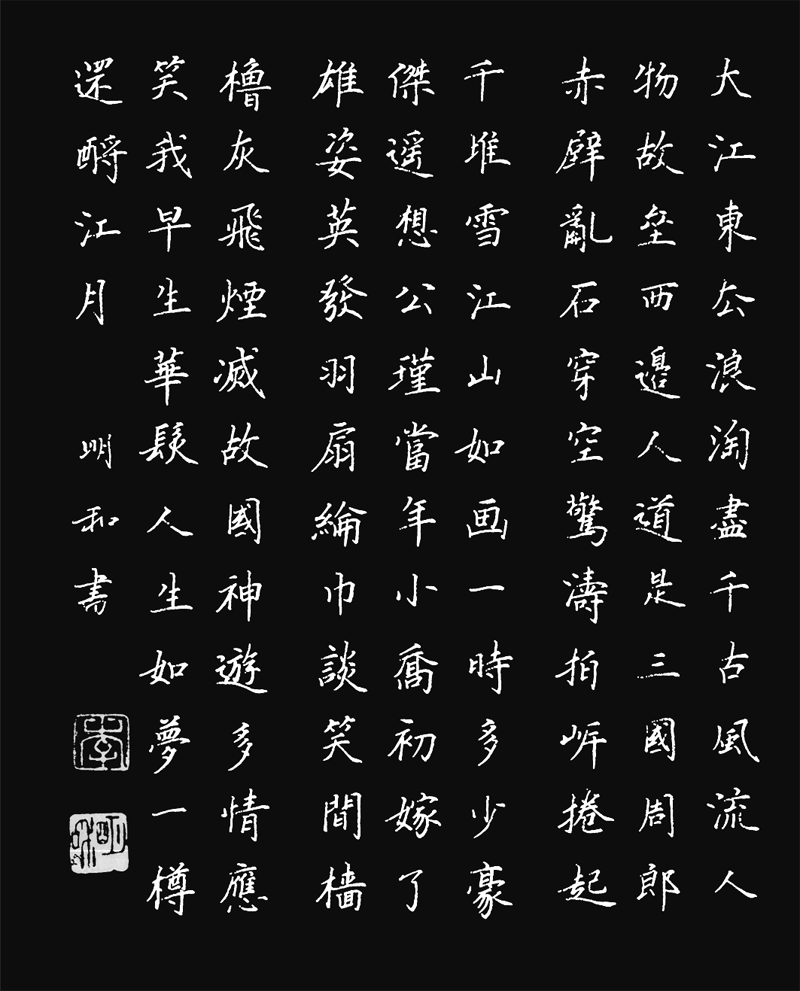 大江東去浪淘盡千古風流人
物故垒西邊人道是三國周郎
赤壁亂石穿空驚濤拍岸捲起
千堆雪江山如画一時多少豪
傑遥想公瑾當年小喬初嫁了
雄姿英發羽扇綸巾談笑間檣
櫓灰飛煙滅故國神遊多情應
笑我早生華髮人生如夢一樽
還酹江月 明和书